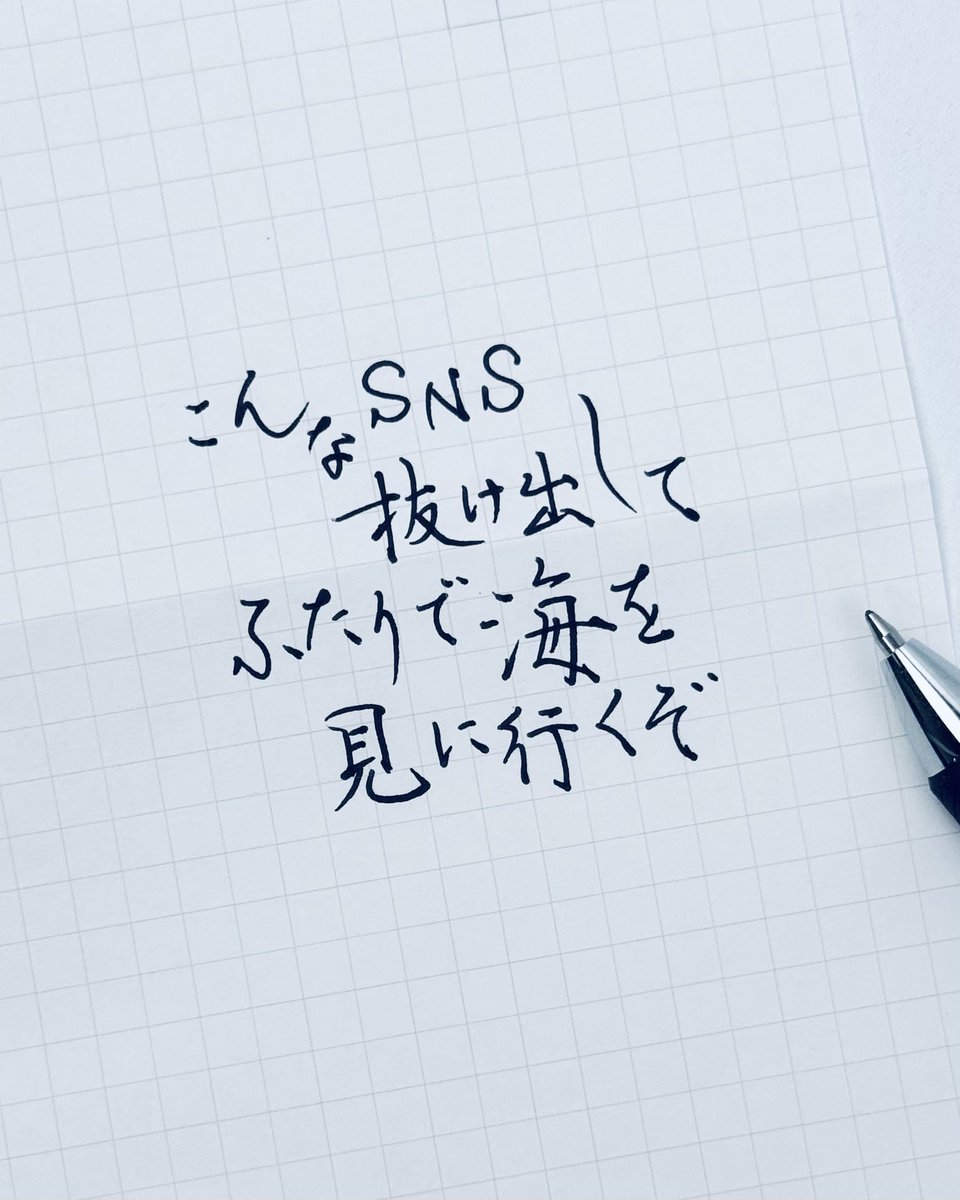 こんなSNS
抜け出して
ふたりで海を
見に行くぞ